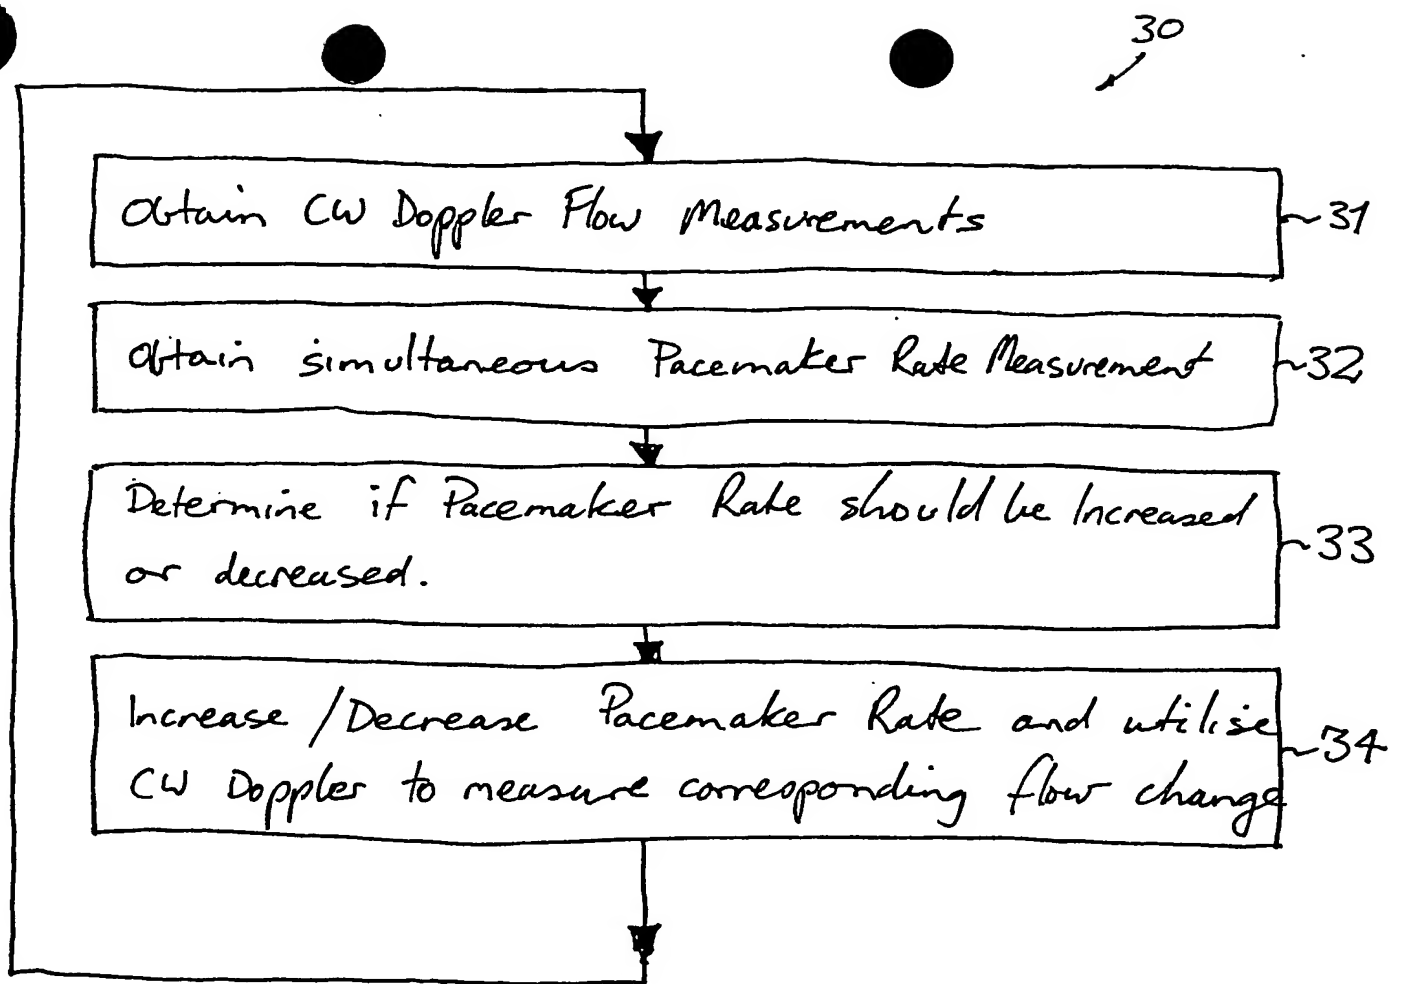 30
Obtain CW Doppler Flow Measurements
31
Obtain simultaneous Pacemaker Rate Measurement
32
Determine if Pacemaker Rate should be Increased
or decreased.
33
Increase / Decrease Pacemaker Rate and utilise
CW Doppler to measure corresponding flow change
34